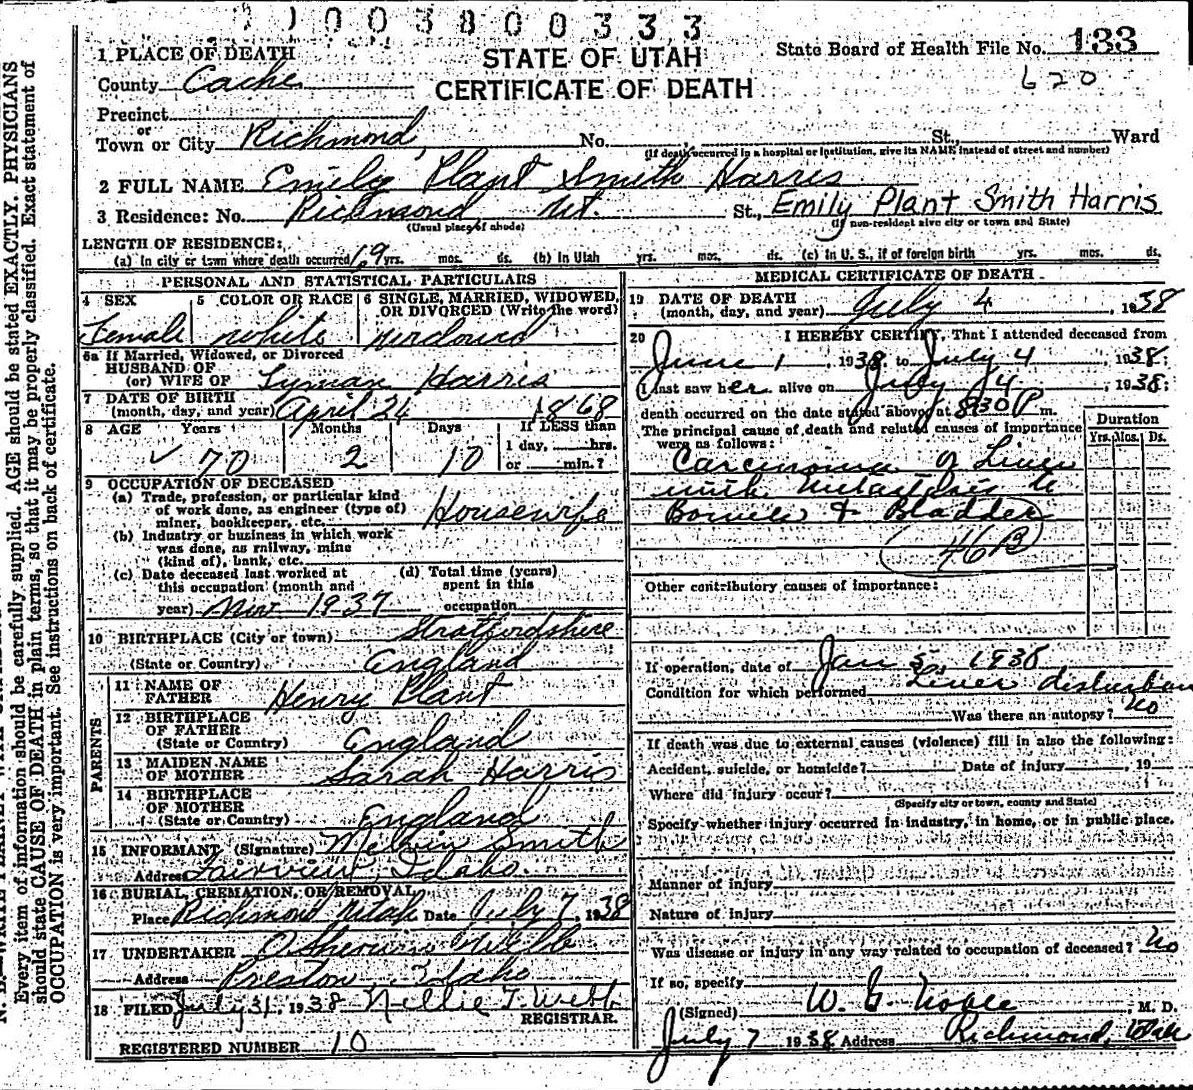 1003800333
STATE OF UTAH
CERTIFICATE OF DEATH
State Board of Health File No. 133
620
1 PLACE OF DEATH
County Cache
Precinct
or
Town or City Richmond, No. St., Ward
(If death occurred in a hospital or institution, give its NAME instead of street and number)
2 FULL NAME Emily Plant Smith Harris
3 Residence: No. Richmond, Ut. St., Emily Plant Smith Harris
(Usual place of abode) (If non-resident give city or town and State)
LENGTH OF RESIDENCE:
(a) In city or town where death occurred 69 yrs. mos. ds. (b) In Utah yrs. mos. ds. (c) In U. S., if of foreign birth yrs. mos. ds.
PERSONAL AND STATISTICAL PARTICULARS
4 SEX
Female
5 COLOR OR RACE
White
6 SINGLE, MARRIED, WIDOWED, OR DIVORCED (Write the word)
Widowed
6a If Married, Widowed, or Divorced
HUSBAND OF
(or) WIFE OF Lyman Harris
7 DATE OF BIRTH
(month, day, and year) April 24 1868
8 AGE Years Months Days If LESS than
70 2 10 1 day, hrs.
or min.?
9 OCCUPATION OF DECEASED
(a) Trade, profession, or particular kind
of work done, as engineer (type of)
miner, bookkeeper, etc. Housewife
(b) Industry or business in which work
was done, as railway, mine
(kind of), bank, etc.
(c) Date deceased last worked at
this occupation (month and
year) Nov 1937
(d) Total time (years)
spent in this
occupation
10 BIRTHPLACE (City or town) Straffordshire
(State or Country) England
PARENTS
11 NAME OF
FATHER Henry Plant
12 BIRTHPLACE
OF FATHER
(State or Country) England
13 MAIDEN NAME
OF MOTHER Sarah Harris
14 BIRTHPLACE
OF MOTHER
(State or Country) England
15 INFORMANT (Signature) Melvin Smith
Address Fairview, Idaho.
16 BURIAL, CREMATION, OR REMOVAL
Place Richmond Utah Date July 7, 1938
17 UNDERTAKER Webb
Address Preston Idaho
18 FILED July 31, 1938 Nellie T. Webb
REGISTRAR.
REGISTERED NUMBER 10
MEDICAL CERTIFICATE OF DEATH
19 DATE OF DEATH
(month, day, and year) July 4, 1938
20 I HEREBY CERTIFY, That I attended deceased from
June 1, 1938, to July 4, 1938;
I last saw her alive on July 4, 1938;
death occurred on the date stated above, at 8:30 P m.
The principal cause of death and related causes of importance
were as follows:
Duration
Yrs. Mos. Ds.
Carcinoma of Liver
with Metastasis to
Bowels & Bladder
46B
Other contributory causes of importance:
If operation, date of Jan 5, 1938
Condition for which performed Liver disturban
Was there an autopsy? No
If death was due to external causes (violence) fill in also the following:
Accident, suicide, or homicide? Date of injury, 19
Where did injury occur?
(Specify city or town, county and State)
Specify whether injury occurred in industry, in home, or in public place.
Manner of injury
Nature of injury
Was disease or injury in any way related to occupation of deceased? No
If so, specify
(Signed) W. G. Noble, M. D.
July 7 1938 Address Richmond, Utah
Every item of information should be carefully supplied. AGE should be stated EXACTLY. PHYSICIANS
should state CAUSE OF DEATH in plain terms, so that it may be properly classified. Exact statement of
OCCUPATION is very important. See instructions on back of certificate.